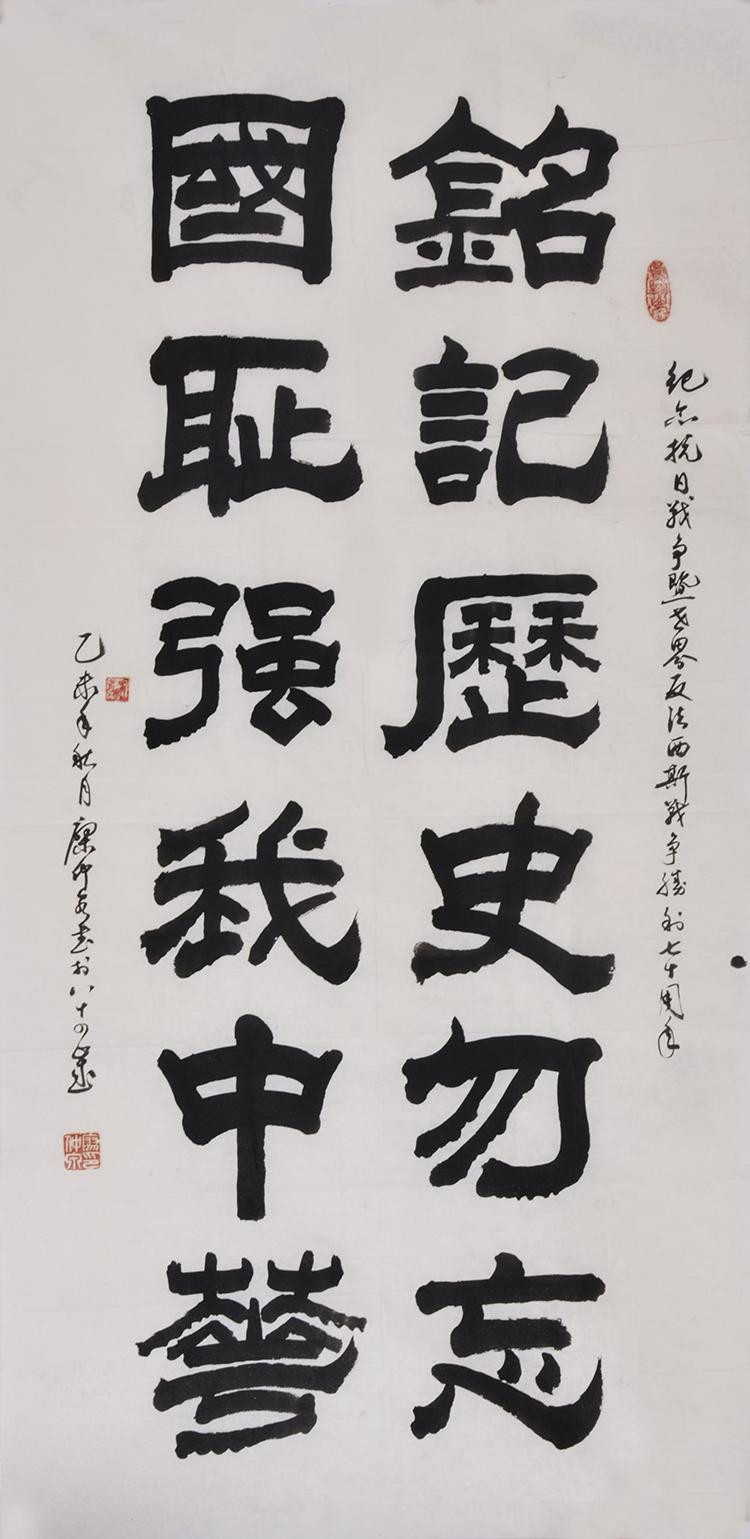 纪念抗日战争暨世界反法西斯战争勝利七十周年
銘記歷史勿忘
國耻强我中華
乙未年秋月 仲 书於八十四歲